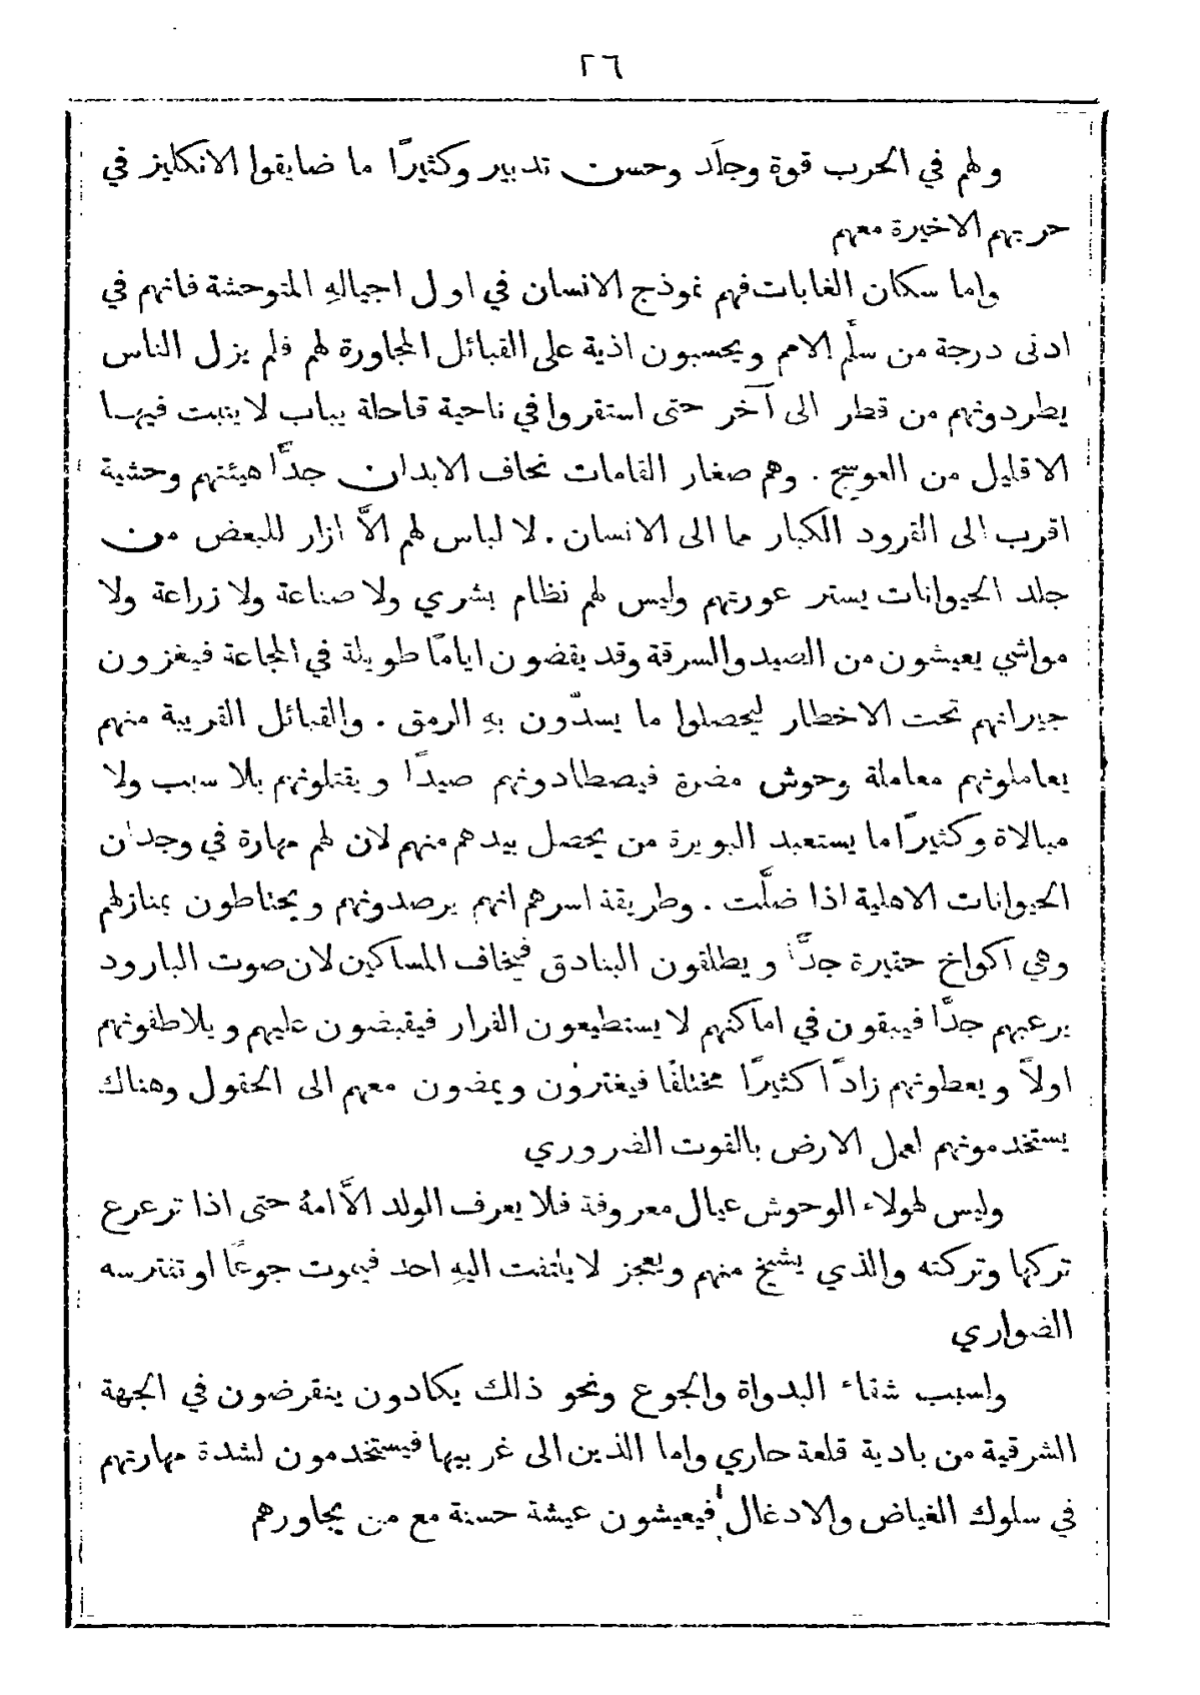 ٢٦
ولهم في الحرب قوة وجلَد وحسن تدبير وكثيرًا ما ضايقوا الانكليز في
حربهم الاخيرة معهم
واما سكان الغابات فهم نموذج الانسان في اول اجيالهِ المتوحشة فانهم في
ادنى درجة من سلَّم الامم ويحسبون اذية على القبائل المجاورة لهم فلم يزل الناس
يطردونهم من قطر الى آخر حتى استقروا في ناحية قاحلة يباب لا ينبت فيها
الا قليل من العوسج . وهم صغار القامات نحاف الابدان جدًّا هيئتهم وحشية
اقرب الى القرود الكبار مما الى الانسان . لا لباس لهم الاَّ ازار للبعض من
جلد الحيوانات يستر عورتهم وليس لهم نظام بشري ولا صناعة ولا زراعة ولا
مواشي يعيشون من الصيد والسرقة وقد يقضون ايامًا طويلة في المجاعة فيغزون
جيرانهم تحت الاخطار ليحصلوا ما يسدّون بهِ الرمق . والقبائل القريبة منهم
يعاملونهم معاملة وحوش مضرة فيصطادونهم صيدًا ويقتلونهم بلا سبب ولا
مبالاة وكثيرًا ما يستعبد البويرة من يحصل بيدهم منهم لان لهم مهارة في وجدان
الحيوانات الاهلية اذا ضلَّت . وطريقة اسرهم انهم يرصدونهم ويحتاطون بمنازلهم
وهي آكواخ حقيرة جدًّا ويطلقون البنادق فيخاف المساكين لان صوت البارود
يرعبهم جدًّا فيبقون في اماكنهم لا يستطيعون الفرار فيقبضون عليهم ويلاطفونهم
اولاً ويعطونهم زادًا كثيرًا مختلفًا فيغترون ويمضون معهم الى الحقول وهناك
يستخدمونهم لعمل الارض بالقوت الضروري
وليس لهولاء الوحوش عيال معروفة فلا يعرف الولد الاَّ امهُ حتى اذا ترعرع
تركها وتركته والذي يشيخ منهم ويعجز لا يلتفت اليهِ احد فيموت جوعًا او تفترسه
الضواري
ولسبب شقاء البداوة والجوع ونحو ذلك يكادون ينقرضون في الجهة
الشرقية من بادية قلعة حاري واما الذين الى غربيها فيستخدمون لشدة مهارتهم
في سلوك الغياض والادغال فيعيشون عيشة حسنة مع من يجاورهم